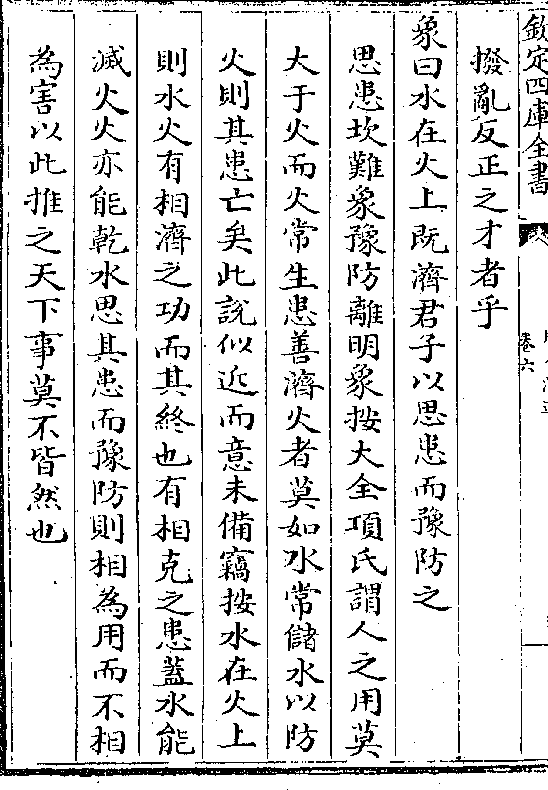 欽定四庫全書
卷六
撥亂反正之才者乎
象曰水在火上既濟君子以思患而豫防之
思患坎難象豫防離明象按大全項氏謂人之用莫
大于火而火常生患善濟火者莫如水常儲水以防
火則其患亡矣此說似近而意未備竊按水在火上
則水火有相濟之功而其終也有相克之患蓋水能
滅火火亦能乾水思其患而豫防則相為用而不相
為害以此推之天下事莫不皆然也